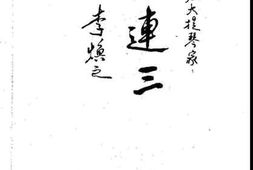 大提琴家
連三
李焕之